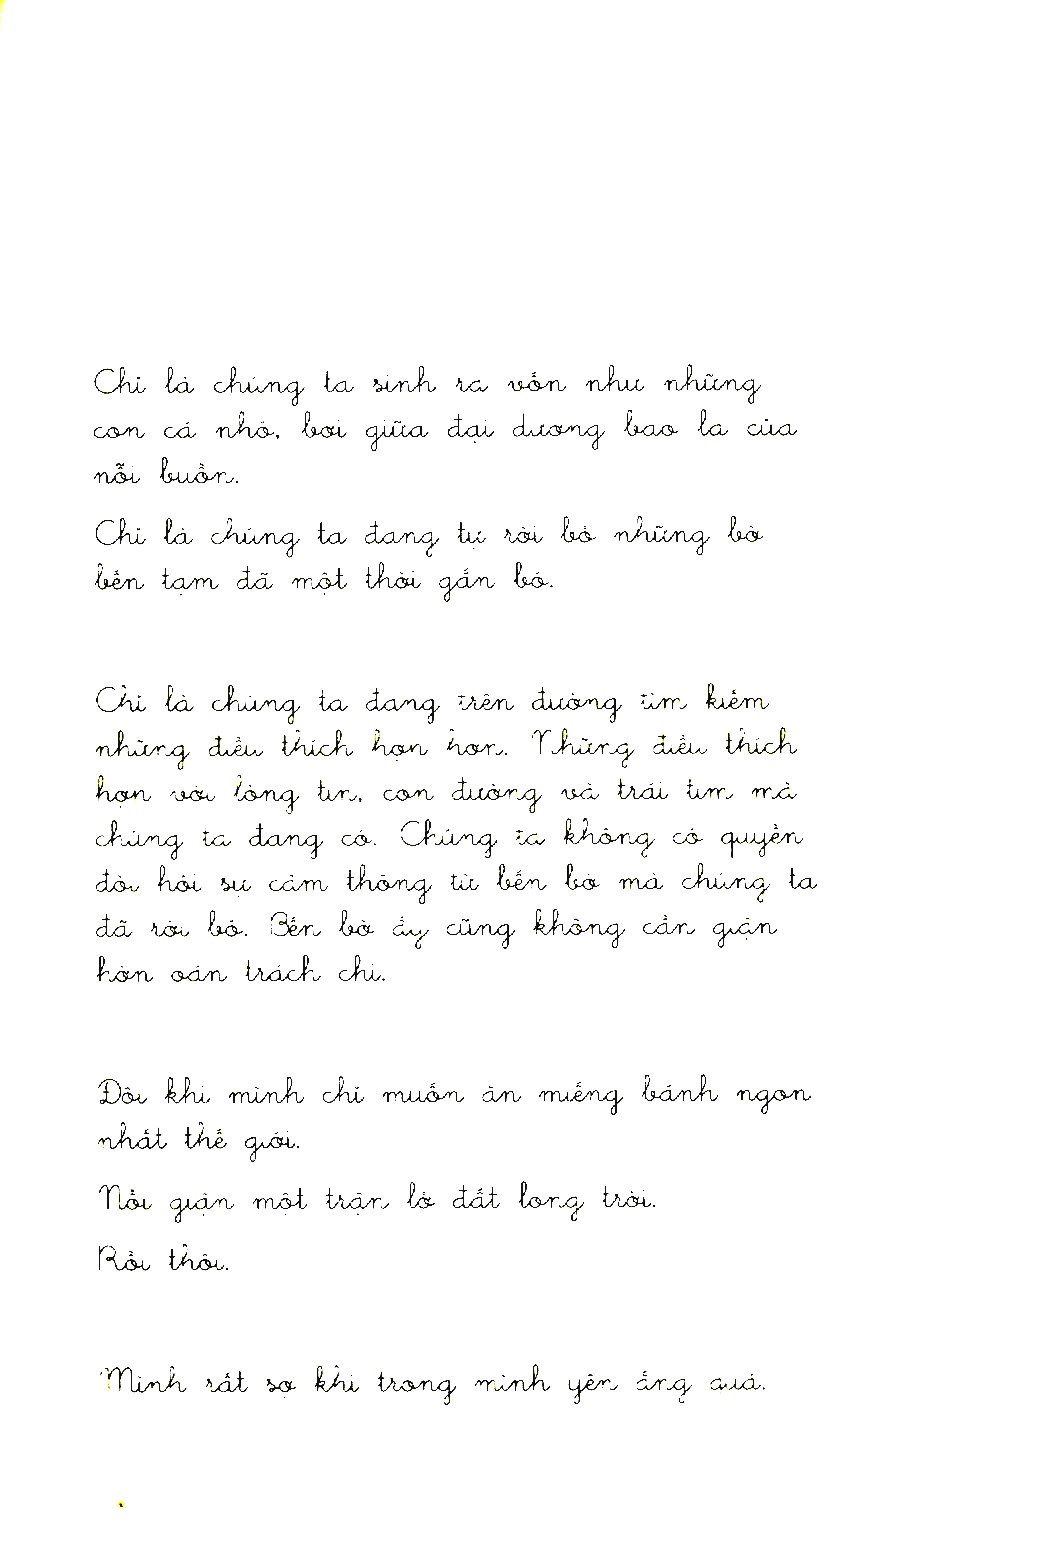 Chỉ là chúng ta sinh ra vốn như những
con cá nhỏ, bơi giữa đại dương bao la của
nỗi buồn.
Chỉ là chúng ta đang tự rời bỏ những bờ
bến tạm đã một thời gắn bó.
Chỉ là chúng ta đang trên đường tìm kiếm
những điều thích hợn hơn. Những điều thích
hợn với lòng tin, con đường và trái tim mà
chúng ta đang có. Chúng ta không có quyền
đòi hỏi sự cảm thông từ bến bờ mà chúng ta
đã rời bỏ. Bến bờ ấy cũng không cần giận
hờn oán trách chi.
Đôi khi mình chỉ muốn ăn miếng bánh ngon
nhất thế giới.
Nổi giận một trận lở đất long trời.
Rồi thôi.
Mình rất sợ khi trong mình yên ắng quá.